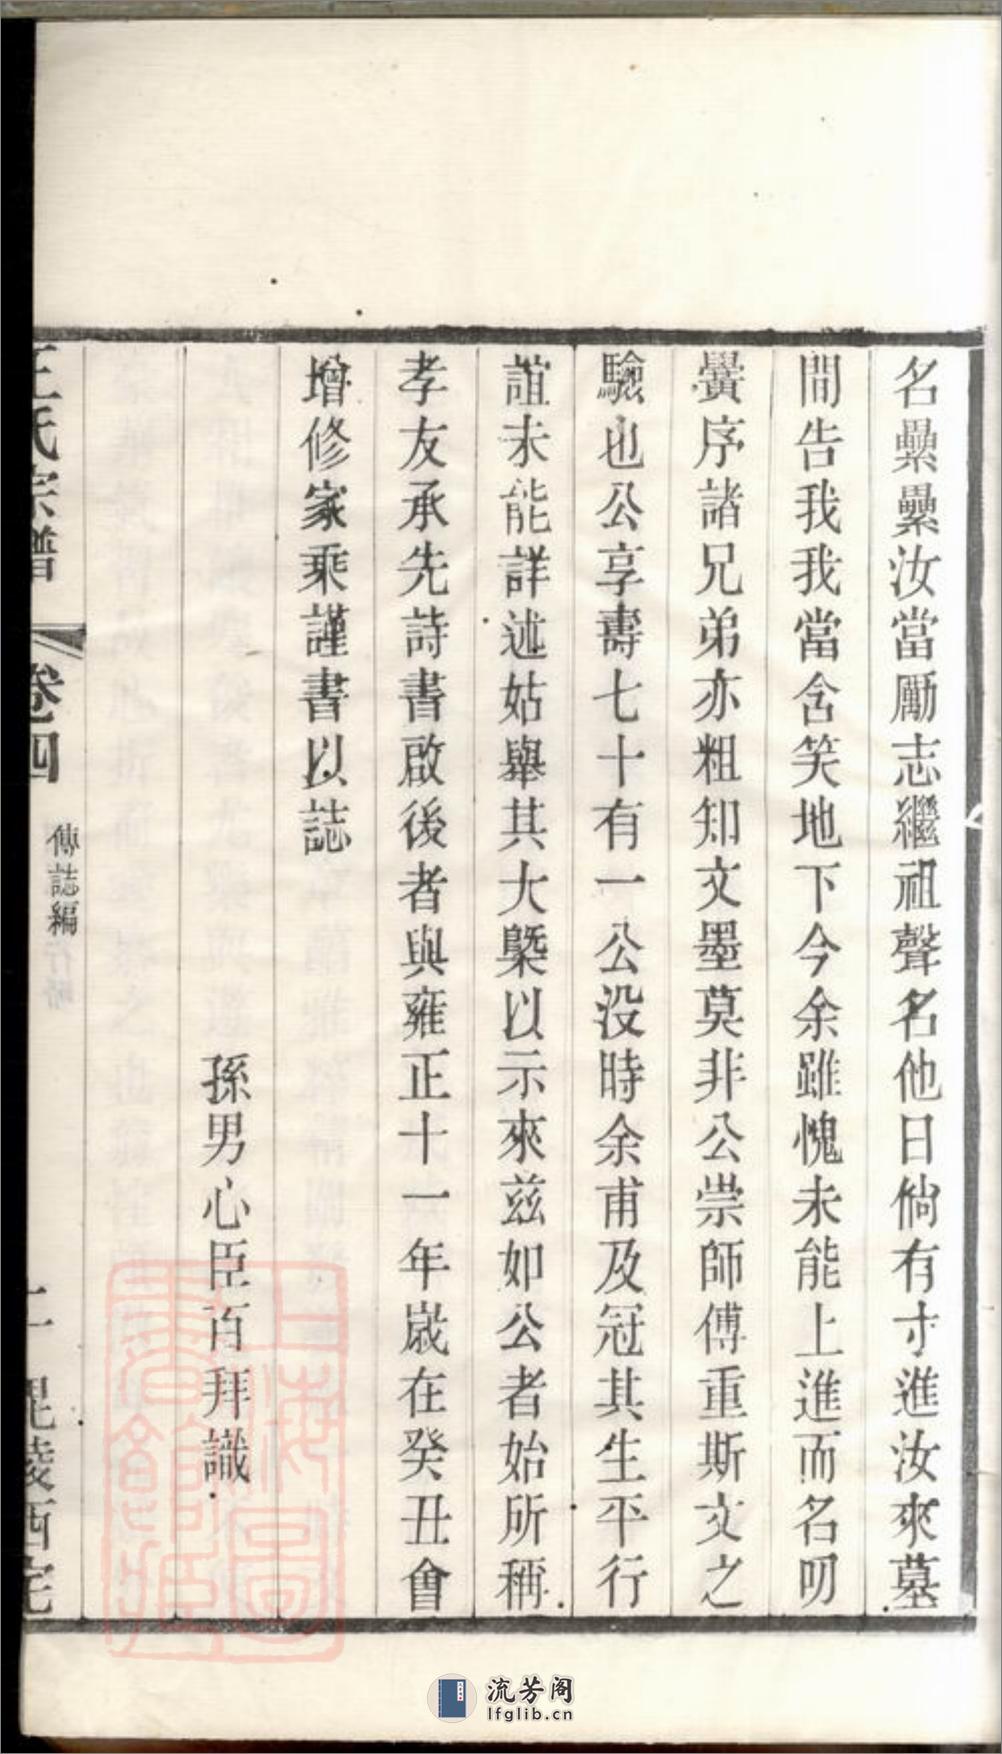 名纍纍汝當勵志繼祖聲名他日倘有寸進汝來墓
間告我我當含笑地下今余雖愧未能上進而名叨
黌序諸兄弟亦粗知文墨莫非公崇師傅重斯文之
驗也公享壽七十有一公没時余甫及冠其生平行
誼未能詳述姑舉其大槩以示來兹如公者始所稱
孝友承先詩書啟後者與雍正十一年歲在癸丑會
增修家乘謹書以誌
孫男心臣百拜識
王氏宗譜
卷四
傳誌編
毘陵西宅
上海圖書館藏
流芳阁
lfglib.cn